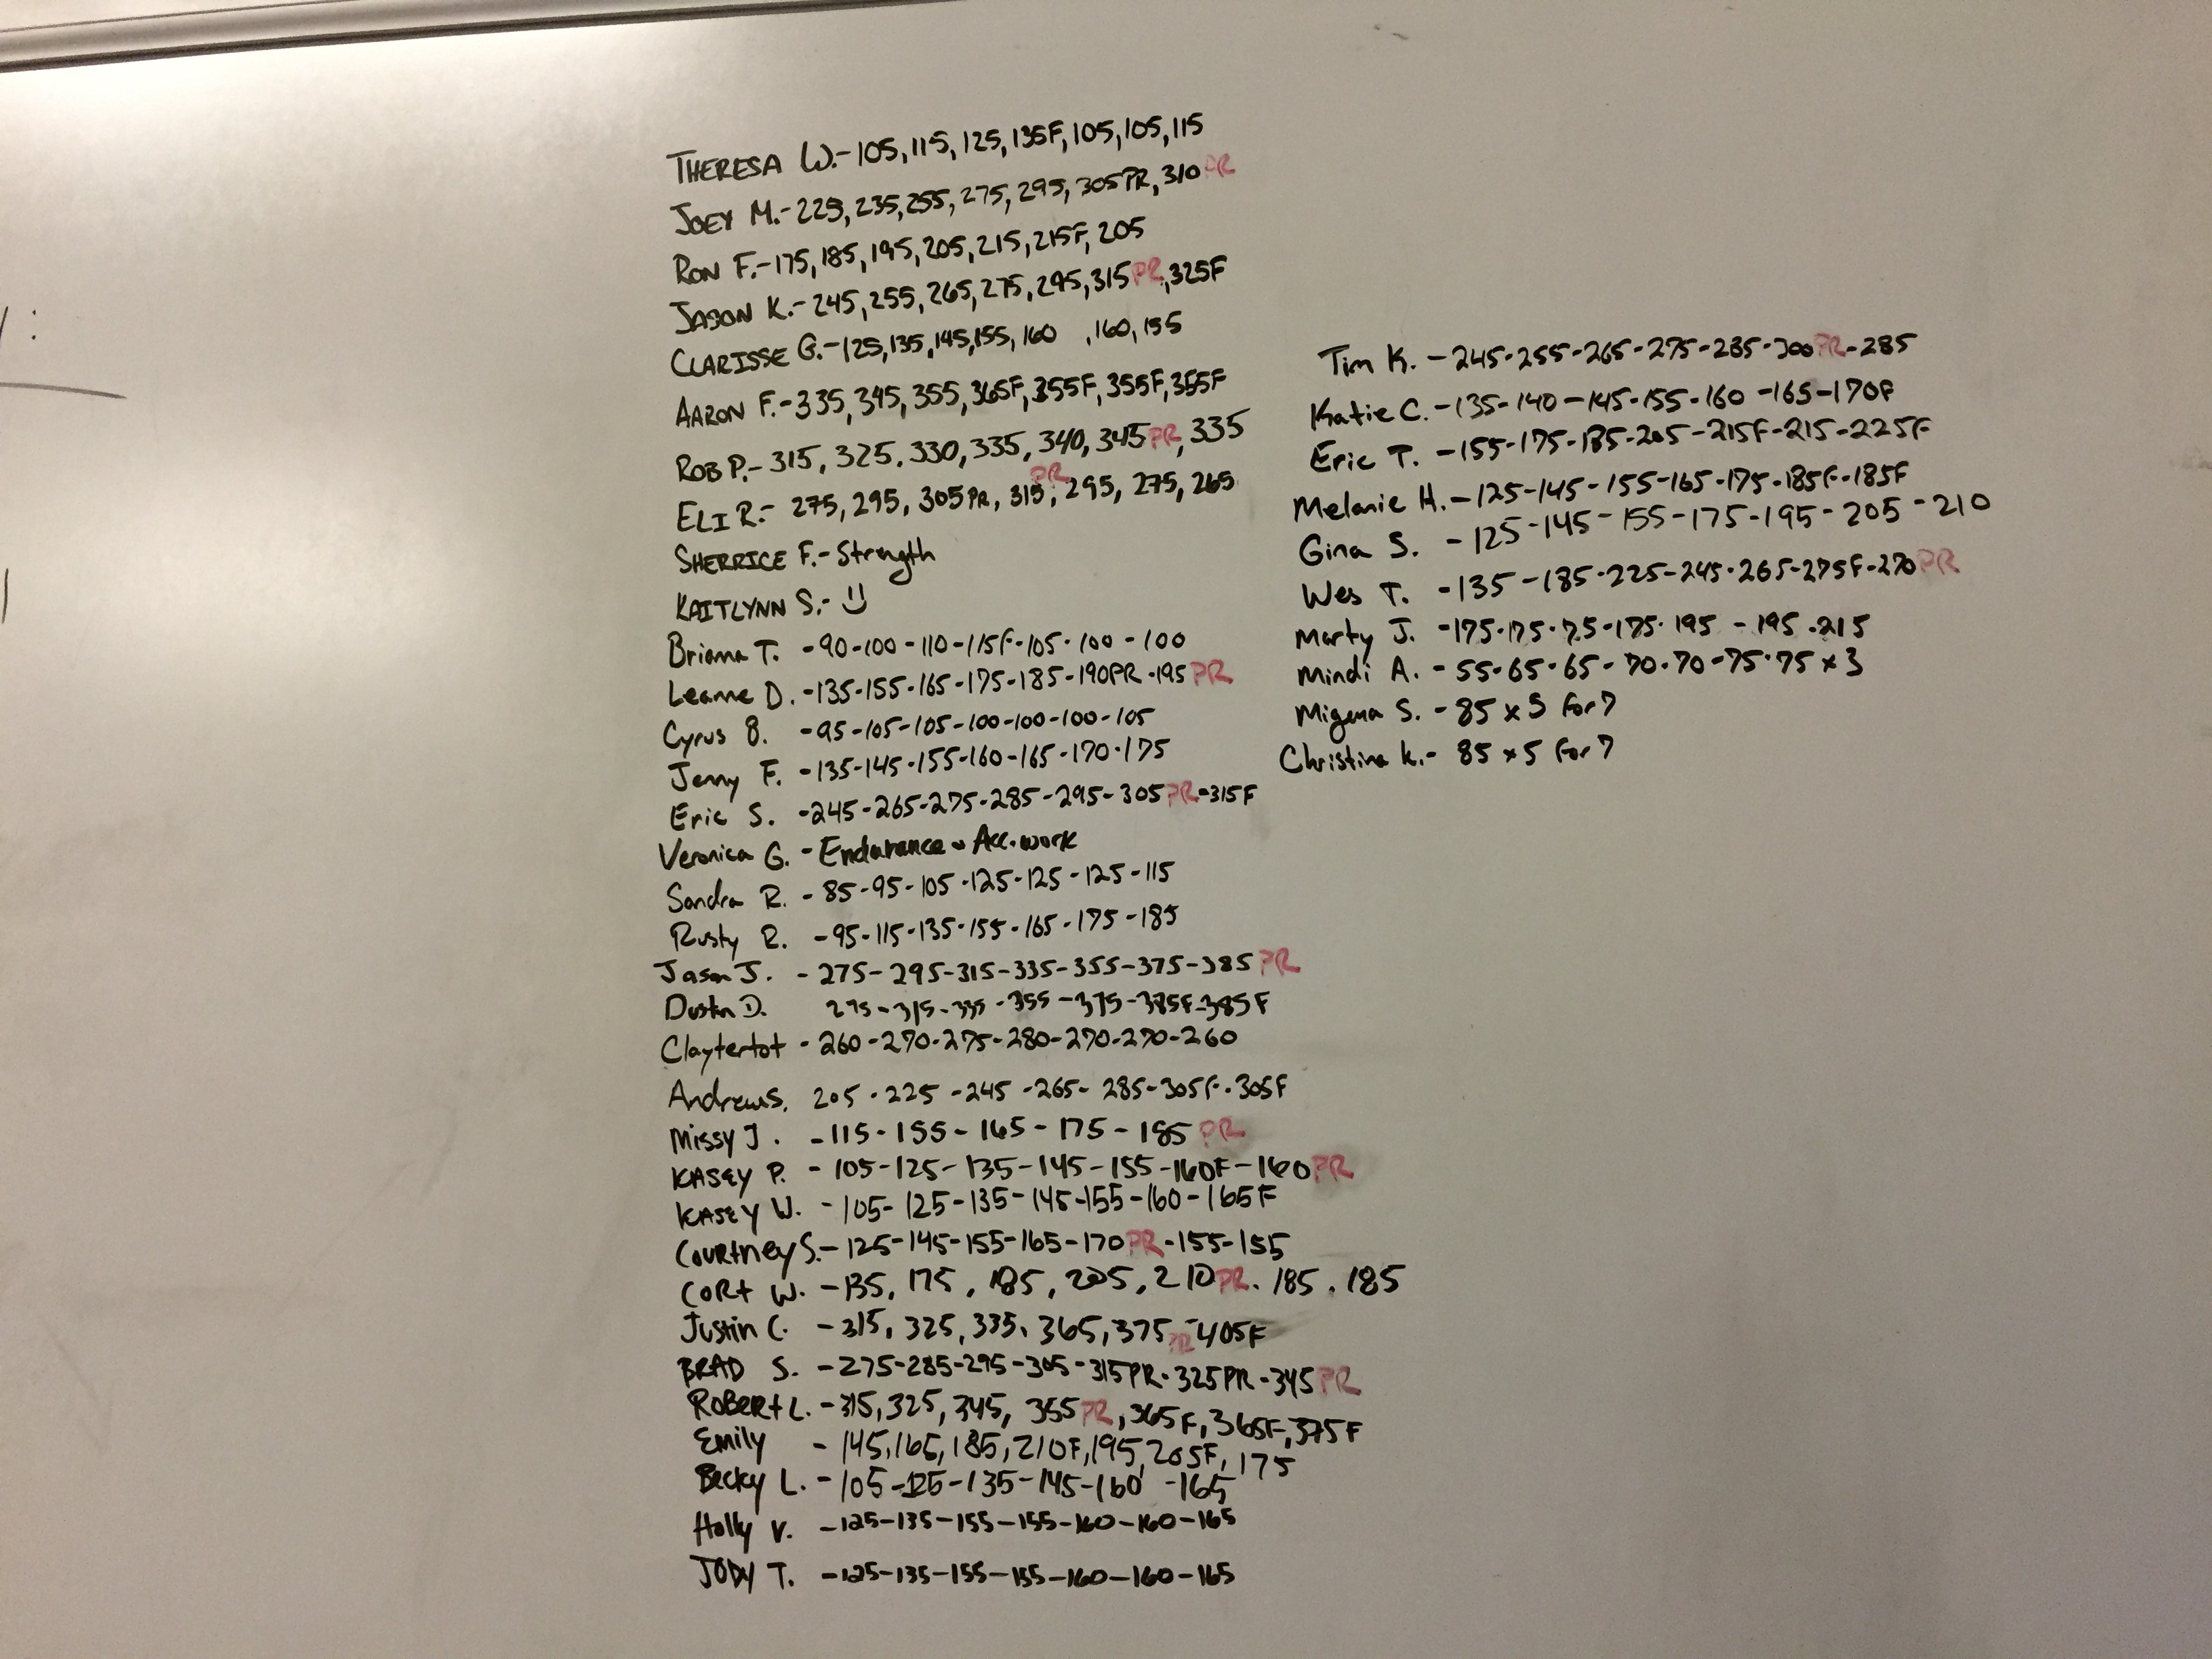 THERESA W.-105, 115, 125, 135F, 105, 105, 115
JOEY M.-225, 235, 255, 275, 295, 305PR, 310PR
RON F.-175, 185, 195, 205, 215, 215F, 205
JASON K.-245, 255, 265, 275, 295, 315PR, 325F
CLARISSE G.-125, 135, 145, 155, 160 , 160, 155
AARON F.-335, 345, 355, 365F, 355F, 355F, 355F
ROB P.- 315, 325, 330, 335, 340, 345PR, 335
ELI R.- 275, 295, 305PR, 315PR, 295, 275, 265
SHERRICE F.- Strength
KAITLYNN S.- :)
Briana T. -90-100-110-115F-105-100-100
Leanne D. -135-155-165-175-185-190PR-195PR
Cyrus B. -95-105-105-100-100-100-105
Jenny F. -135-145-155-160-165-170-175
Eric S. -245-265-275-285-295-305PR-315F
Veronica G. - Endurance + Acc. work
Sandra R. -85-95-105-125-125-125-115
Rusty R. -95-115-135-155-165-175-185
Jason J. -275-295-315-335-355-375-385PR
Dustin D. 275-315-335-355-375-385F-385F
Claytertot -260-270-275-280-270-270-260
Andrew S. 205-225-245-265-285-305F-305F
Missy J. -115-155-165-175-185PR
KASEY P. -105-125-135-145-155-160F-160PR
KASEY W. -105-125-135-145-155-160-165F
COURtNEY S.-125-145-155-165-170PR-155-155
CORt W. -135, 175, 185, 205, 210PR. 185. 185
Justin C. -315, 325, 335, 365, 375PR-405F
BRAD S. -275-285-295-305-315PR-325PR-345PR
ROBERt L. -315, 325, 345, 355PR, 365F, 365F, 375F
Emily -145, 165, 185, 210F, 195, 205F, 175
Becky L. -105-125-135-145-160 -165
Holly V. -125-135-155-155-160-160-165
JODY T. -125-135-155-155-160-160-165
Tim K. -245-255-265-275-285-300PR-285
Katie C. -135-140-145-155-160-165-170F
Eric T. -155-175-185-205-215F-215-225F
Melanie H. -125-145-155-165-175-185F-185F
Gina S. -125-145-155-175-195-205-210
Wes T. -135-185-225-245-265-275F-270PR
Marty J. -175-175-175-175-195-195-215
Mindi A. -55-65-65-70-70-75-75 x 3
Migena S. -85 x 5 for 7
Christina K.- 85 x 5 for 7